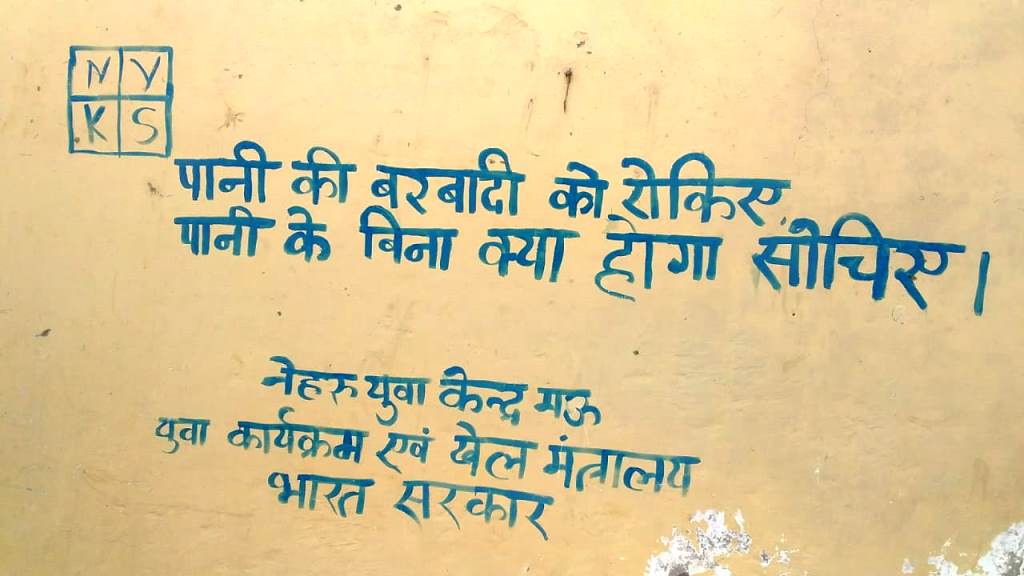 N Y
K S
पानी की बरबादी को रोकिए,
पानी के बिना क्या होगा सोचिए।
नेहरु युवा केन्द्र मऊ
युवा कार्यक्रम एवं खेल मंत्रालय
भारत सरकार